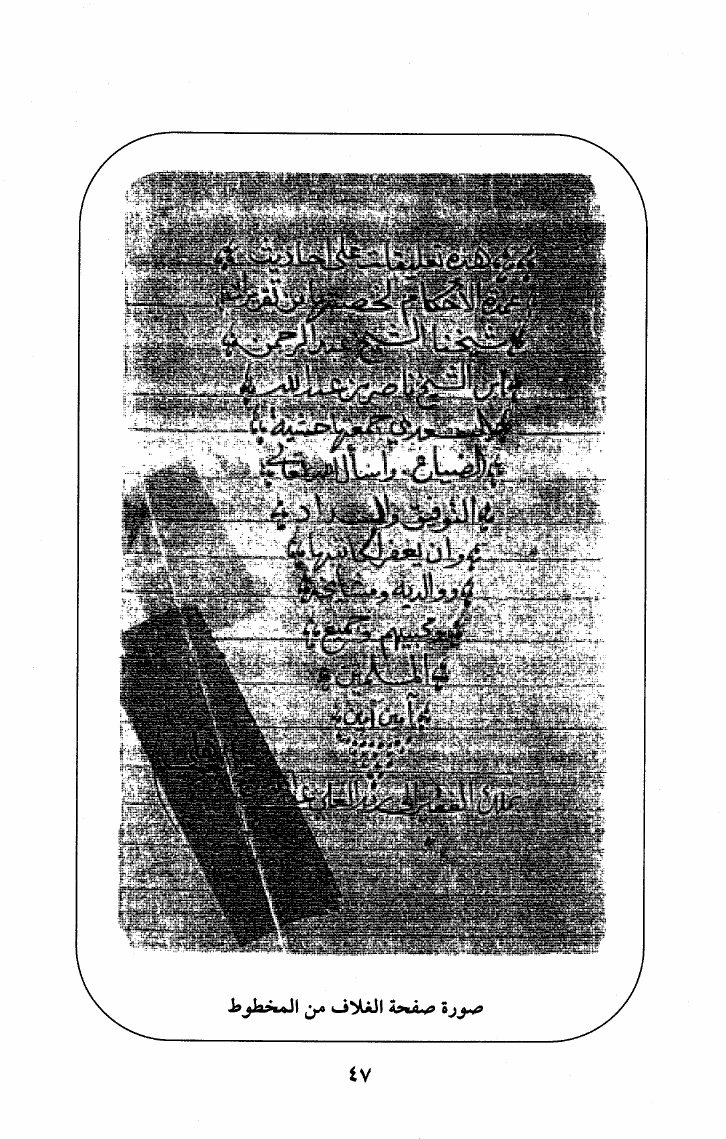 هذه تعليقات على أحاديث
عمدة الأحكام لخصتها من تقرير
شيخنا الشيخ عبد الرحمن
ابن الشيخ ناصر بن عبد الله
السعدي جمعها خشية
الضياع وأسأل الله تعالى
التوفيق والسداد
وان يغفر لكاتبها
ووالديه ومشايخه
ومحبيهم وجميع
المسلمين
آمين آمين
الفقير إلى
صورة صفحة الغلاف من المخطوط
٤٧